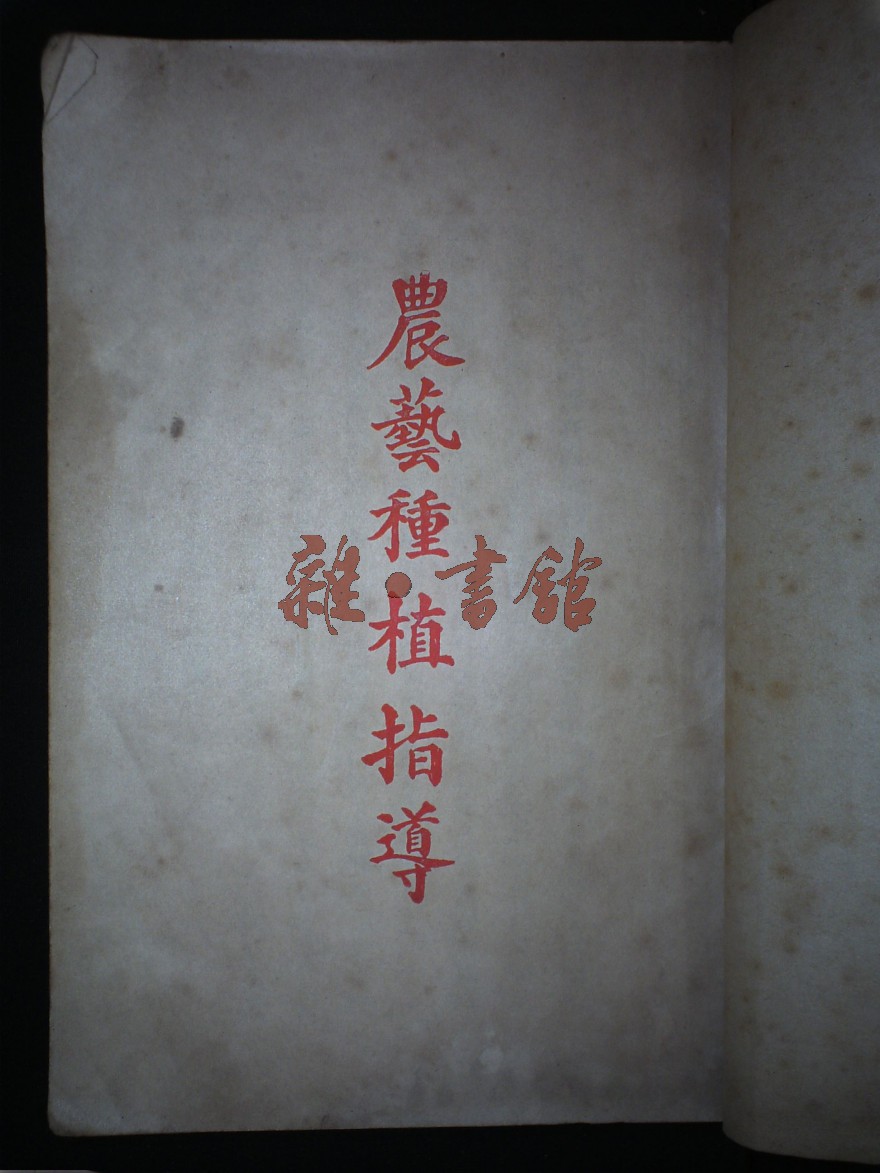 農藝種植指導
雜·書館